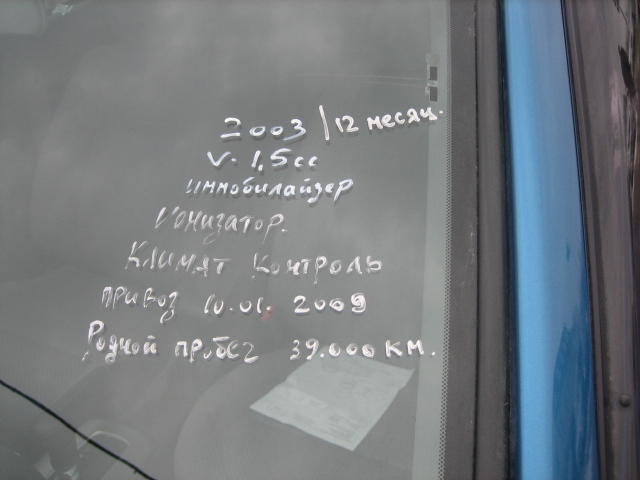 2003 / 12 месяц.
V. 1,5сс
иммобилайзер
Ионизатор.
Климат контроль
привоз 10.01. 2009
Родной пробег 39.000 км.